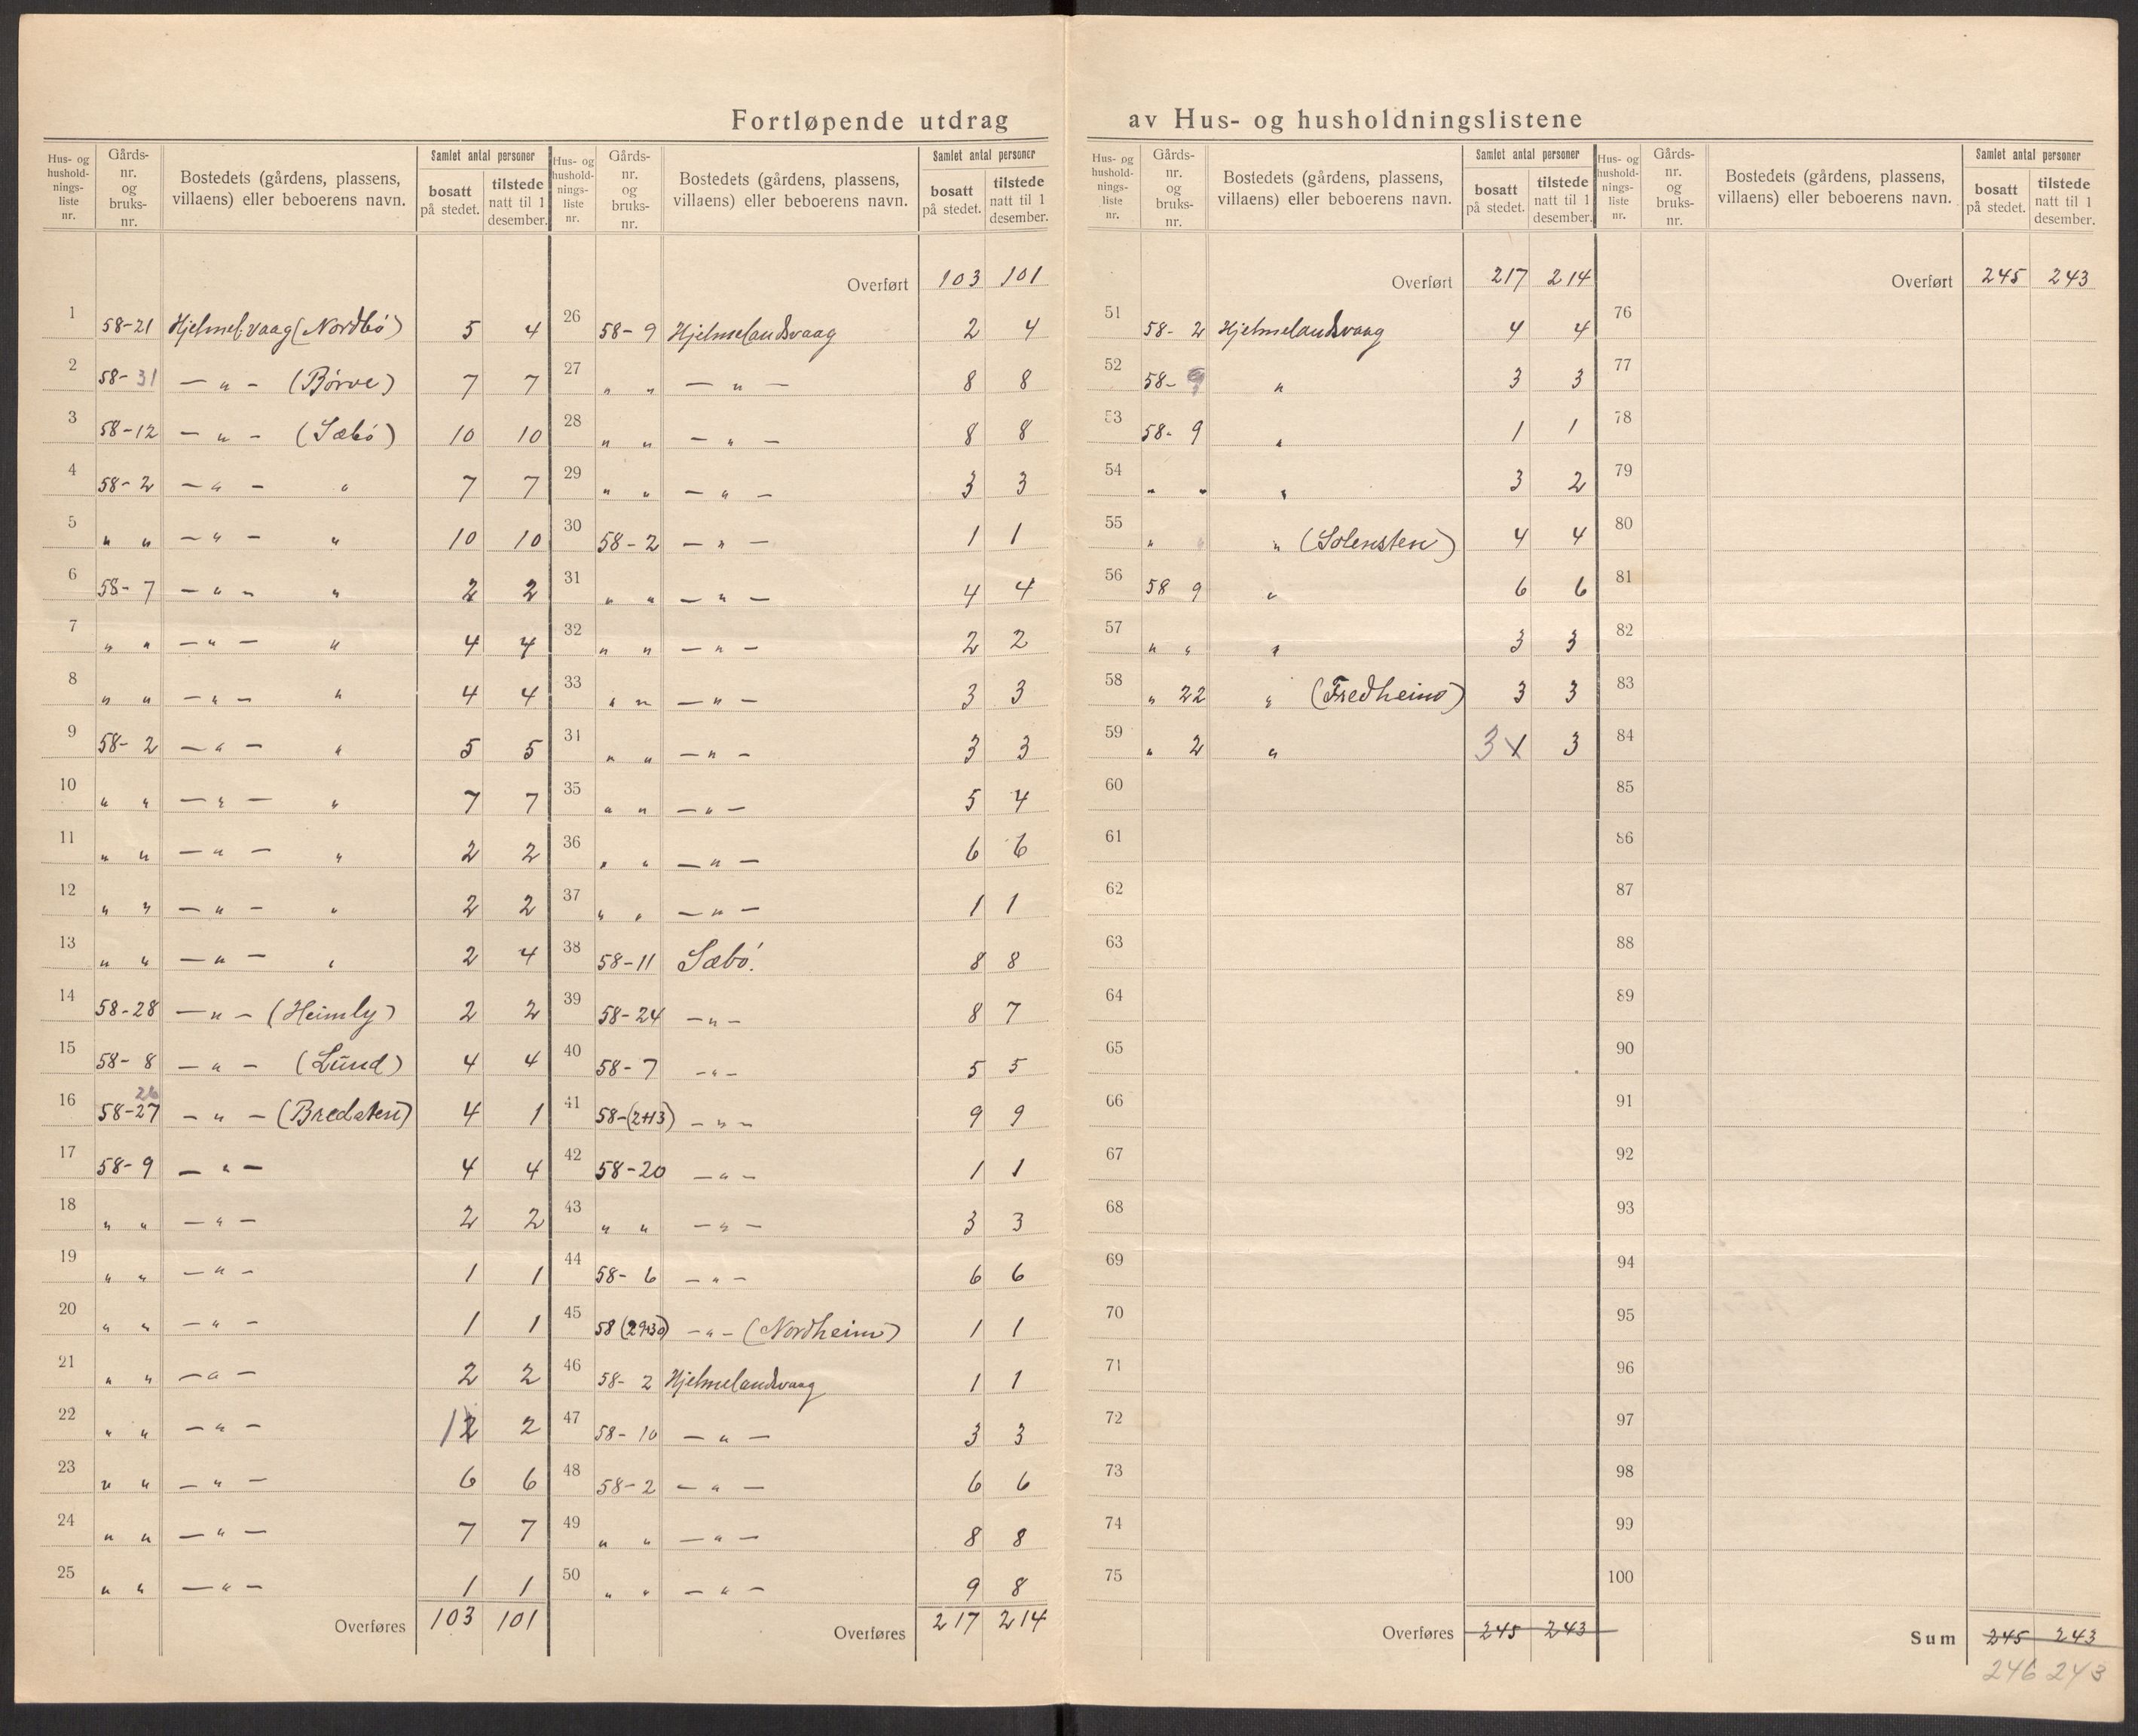 Fortløpende utdrag av Hus- og husholdningslistene
Hus- og hushold- nings- liste nr. | Gårds- nr. og bruks- nr. | Bostedets (gårdens, plassens, villaens) eller beboerens navn. | Samlet antal personer | bosatt på stedet. | tilstede natt til 1 desember.
1 58-21 Hjelmel.vaag (Nordbö) 5 4
2 58-31 — " — (Börve) 7 7
3 58-12 — " — (Sæbö) 10 10
4 58-2 — " — " 7 7
5 " " — " — " 10 10
6 58-7 — " — " 2 2
7 " " — " — " 4 4
8 " " — " — " 4 4
9 58-2 — " — " 5 5
10 " " — " — " 7 7
11 " " — " — " 2 2
12 " " — " — " 2 2
13 " " — " — " 2 4
14 58-28 — " — (Heimly) 2 2
15 58-8 — " — (Lund) 4 4
26
16 58-27 — " — (Bredsten) 4 1
17 58-9 — " — 4 4
18 " " — " — 2 2
19 " " — " — 1 1
20 " " — " — 1 1
21 " " — " — 2 2
22 " " — " — 1 2 2
23 " " — " — 6 6
24 " " — " — 7 7
25 " " — " — 1 1
Overføres 103 101
Hus- og hushold- nings- liste nr. | Gårds- nr. og bruks- nr. | Bostedets (gårdens, plassens, villaens) eller beboerens navn. | Samlet antal personer | bosatt på stedet. | tilstede natt til 1 desember.
Overført 103 101
26 58-9 Hjelmelandsvaag 2 4
27 " " — " — 8 8
28 " " — " — 8 8
29 " " — " — 3 3
30 58-2 — " — 1 1
31 " " — " — 4 4
32 " " — " — 2 2
33 " " — " — 3 3
31 " " — " — 3 3
35 " " — " — 5 4
36 " " — " — 6 6
37 " " — " — 1 1
38 58-11 Sæbö. 8 8
39 58-24 — " — 8 7
40 58-7 — " — 5 5
41 58-(2+13) — " — 9 9
42 58-20 — " — 1 1
43 " " — " — 3 3
44 58-6 — " — 6 6
45 58 (29+30) — " — (Nordheim) 1 1
46 58-2 Hjelmelandsvaag 1 1
47 58-10 — " — 3 3
48 58-2 — " — 6 6
49 " " — " — 8 8
50 " " — " — 9 8
Overføres 217 214
Hus- og hushold- nings- liste nr. | Gårds- nr. og bruks- nr. | Bostedets (gårdens, plassens, villaens) eller beboerens navn. | Samlet antal personer | bosatt på stedet. | tilstede natt til 1 desember.
Overført 217 214
51 58-2 Hjelmelandsvaag 4 4
52 58- " 3 3
53 58-9 " 1 1
54 " " " 3 2
55 " " " (Solensten) 4 4
56 58 9 " 6 6
57 " " " 3 3
58 " 22 " (Fredheim) 3 3
59 " 2 " 3 3
60
61
62
63
64
65
66
67
68
69
70
71
72
73
74
75
Overføres 245 243
Hus- og hushold- nings- liste nr. | Gårds- nr. og bruks- nr. | Bostedets (gårdens, plassens, villaens) eller beboerens navn. | Samlet antal personer | bosatt på stedet. | tilstede natt til 1 desember.
Overført 245 243
76
77
78
79
80
81
82
83
84
85
86
87
88
89
90
91
92
93
94
95
96
97
98
99
100
Sum 245 243
246 243